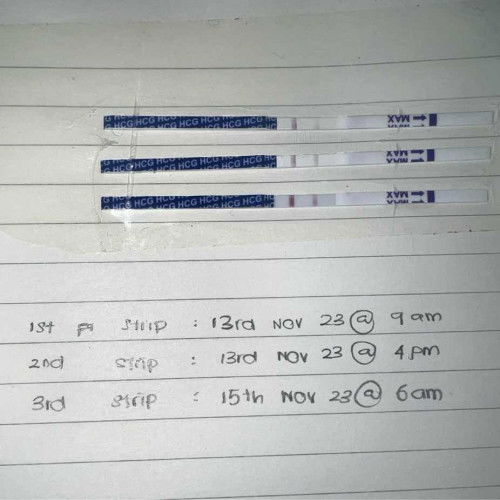 HCG HCG HCG HCG HCG HCG HCG MAX
HCG HCG HCG HCG HCG HCG HCG MAX
HCG HCG HCG HCG HCG HCG HCG MAX
1st strip : 13rd NOV 23 @ 9 am
2nd strip : 13rd NOV 23 @ 4 pm
3rd strip : 15th NOV 23 @ 6 am